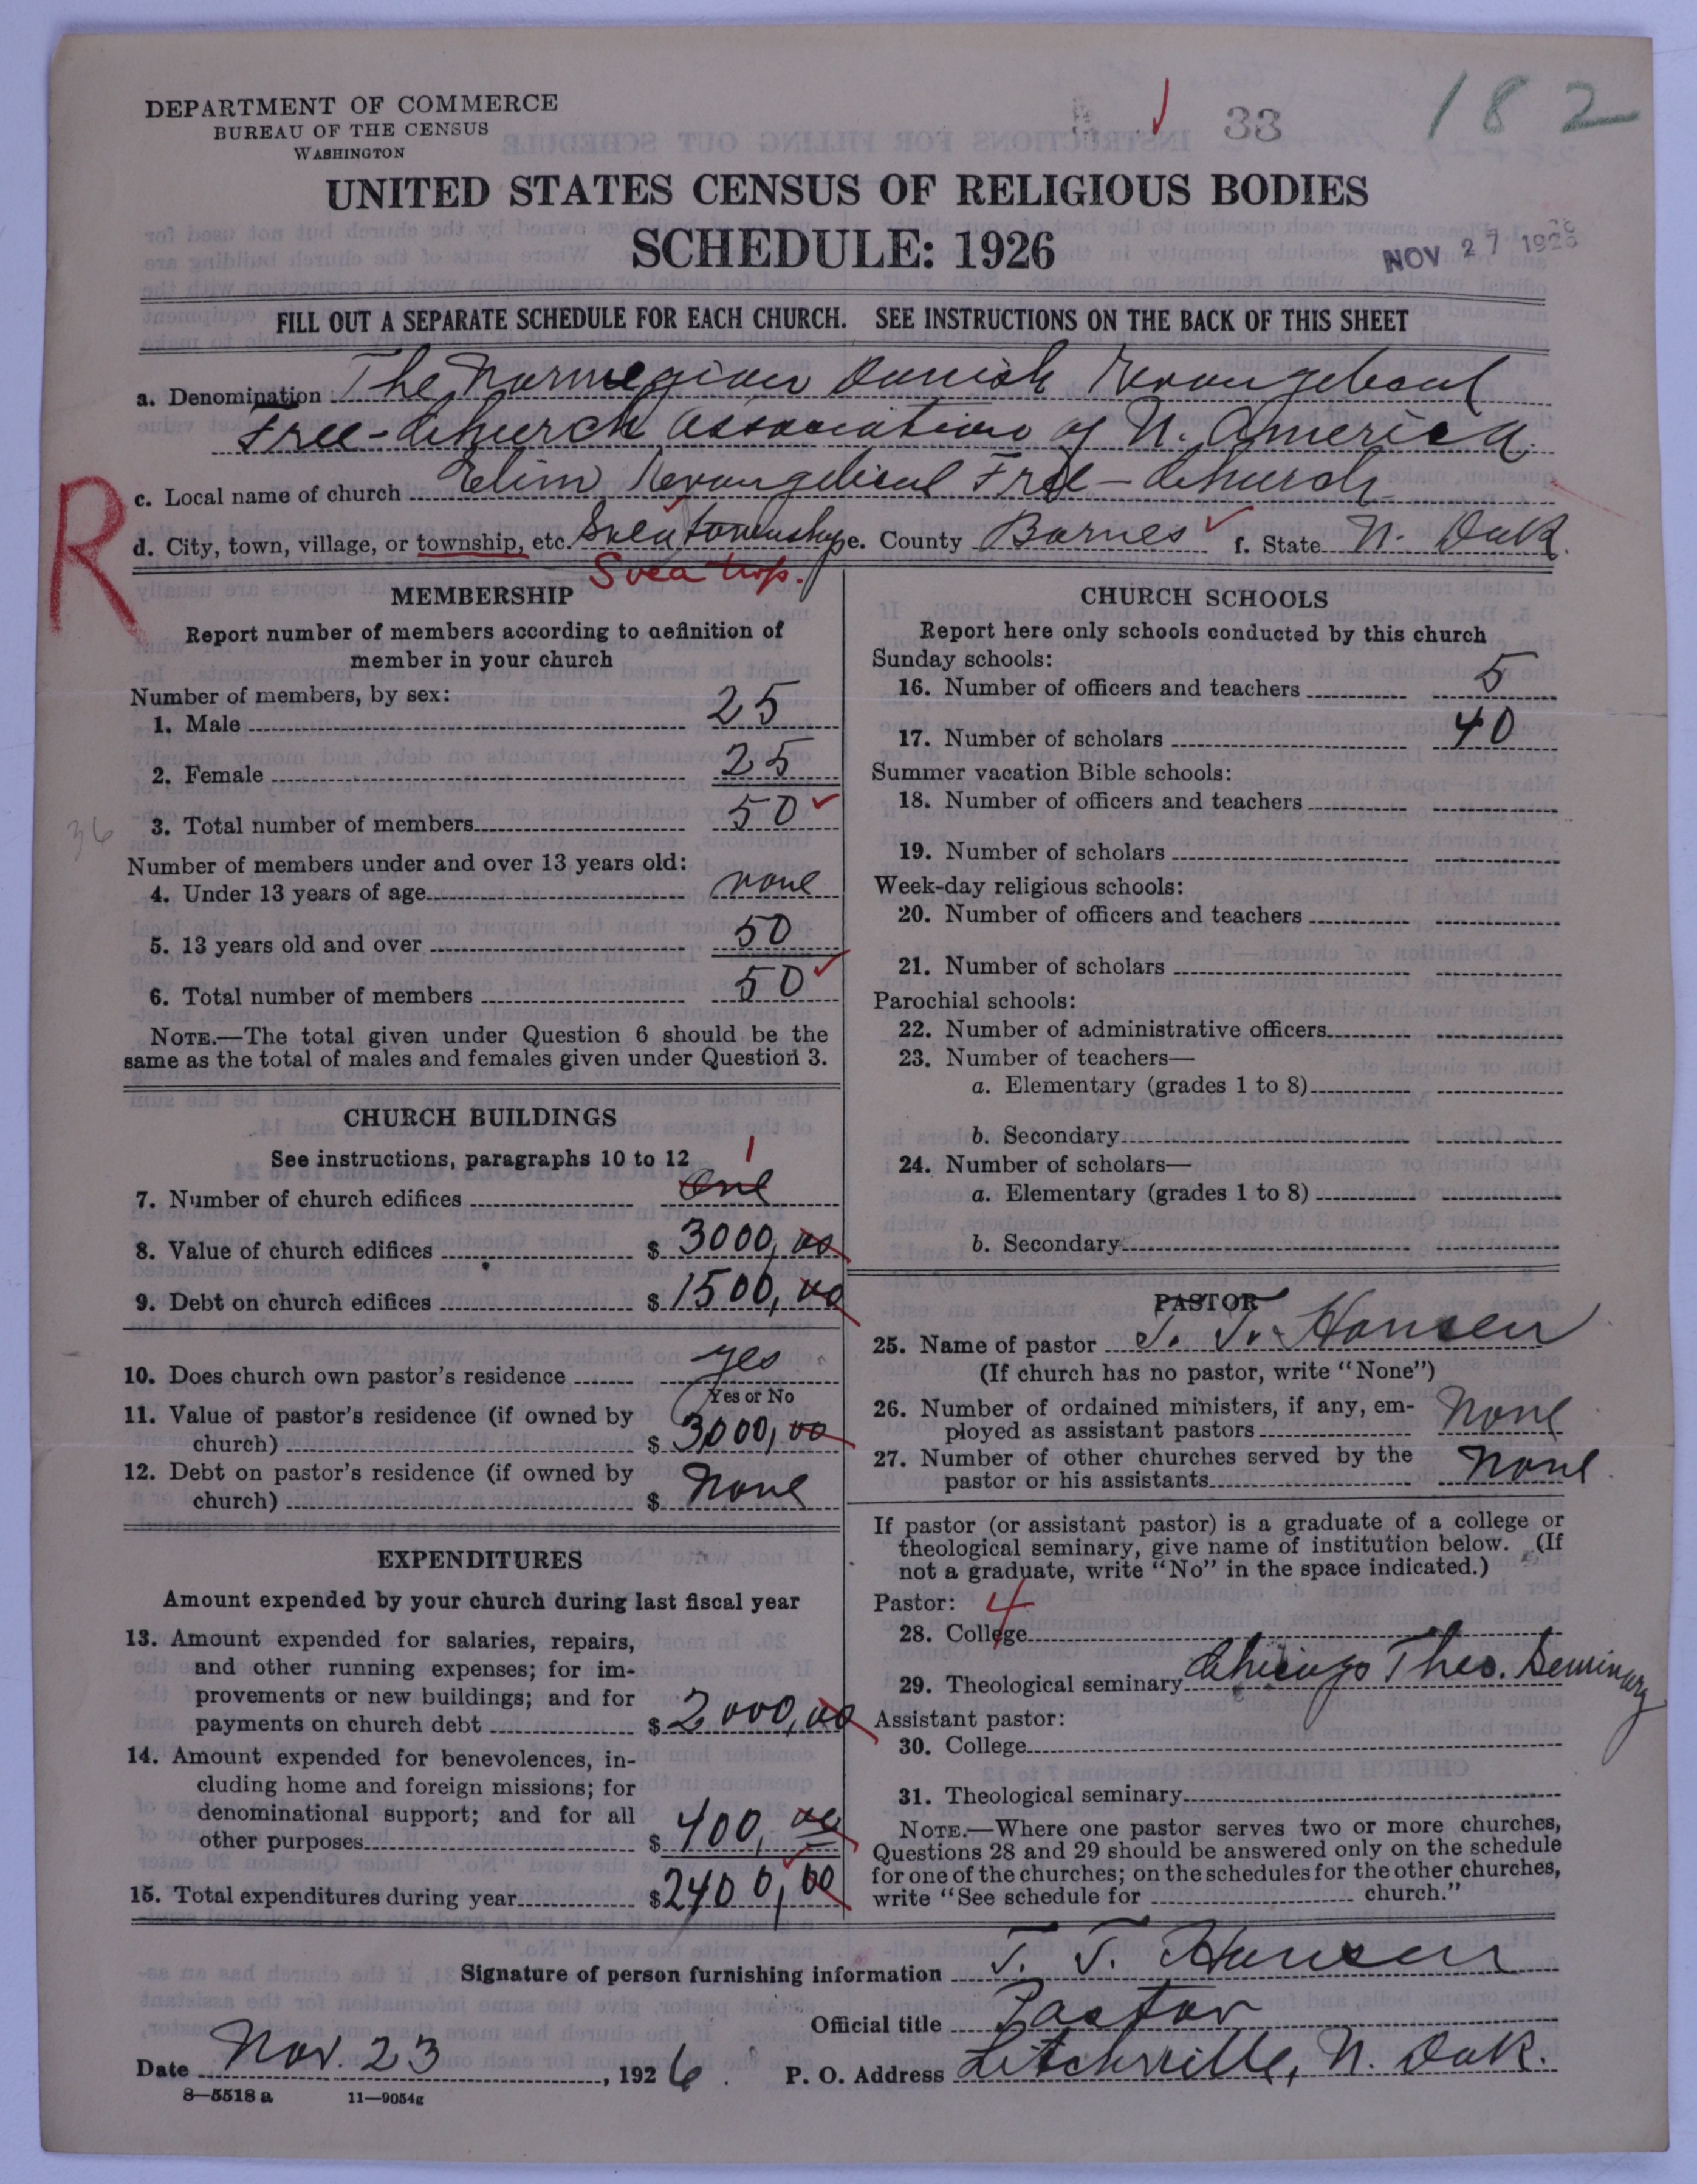 DEPARTMENT OF COMMERCE
BUREAU OF THE CENSUS
WASHINGTON
33
182
UNITED STATES CENSUS OF RELIGIOUS BODIES
SCHEDULE: 1926
NOV 27 1926
FILL OUT A SEPARATE SCHEDULE FOR EACH CHURCH. SEE INSTRUCTIONS ON THE BACK OF THIS SHEET
a. Denomination The Norwegian Danish Evangelical
Free-Church Association of N. America.
R
c. Local name of church Elim Evangelical Free-Church
d. City, town, village, or township, etc. Svea township e. County Barnes f. State N. Dak.
Svea twp.
MEMBERSHIP
Report number of members according to definition of
member in your church
Number of members, by sex:
1. Male 25
2. Female 25
3. Total number of members 50
36
Number of members under and over 13 years old:
4. Under 13 years of age none
5. 13 years old and over 50
6. Total number of members 50
NOTE.—The total given under Question 6 should be the
same as the total of males and females given under Question 3.
CHURCH BUILDINGS
See instructions, paragraphs 10 to 12
1
7. Number of church edifices One
8. Value of church edifices $ 3000,00
9. Debt on church edifices $ 1500,00
10. Does church own pastor's residence yes
Yes or No
11. Value of pastor's residence (if owned by
church) $ 3000,00
12. Debt on pastor's residence (if owned by
church) $ None
EXPENDITURES
Amount expended by your church during last fiscal year
13. Amount expended for salaries, repairs,
and other running expenses; for im-
provements or new buildings; and for
payments on church debt $ 2000,00
14. Amount expended for benevolences, in-
cluding home and foreign missions; for
denominational support; and for all
other purposes $ 400,00
15. Total expenditures during year $ 2400,00
CHURCH SCHOOLS
Report here only schools conducted by this church
Sunday schools:
16. Number of officers and teachers 5
17. Number of scholars 40
Summer vacation Bible schools:
18. Number of officers and teachers
19. Number of scholars
Week-day religious schools:
20. Number of officers and teachers
21. Number of scholars
Parochial schools:
22. Number of administrative officers
23. Number of teachers—
a. Elementary (grades 1 to 8)
b. Secondary
24. Number of scholars—
a. Elementary (grades 1 to 8)
b. Secondary
PASTOR
25. Name of pastor T. T. Hansen
(If church has no pastor, write "None")
26. Number of ordained ministers, if any, em-
ployed as assistant pastors None
27. Number of other churches served by the
pastor or his assistants None
If pastor (or assistant pastor) is a graduate of a college or
theological seminary, give name of institution below. (If
not a graduate, write "No" in the space indicated.)
Pastor: 4
28. College
29. Theological seminary Chicago Theo. Seminary
Assistant pastor:
30. College
31. Theological seminary
NOTE.—Where one pastor serves two or more churches,
Questions 28 and 29 should be answered only on the schedule
for one of the churches; on the schedules for the other churches,
write "See schedule for church."
Signature of person furnishing information T. T. Hansen
Official title Pastor
Date Nov. 23, 1926. P. O. Address Litchville, N. Dak.
8—5518 a 11—9054g